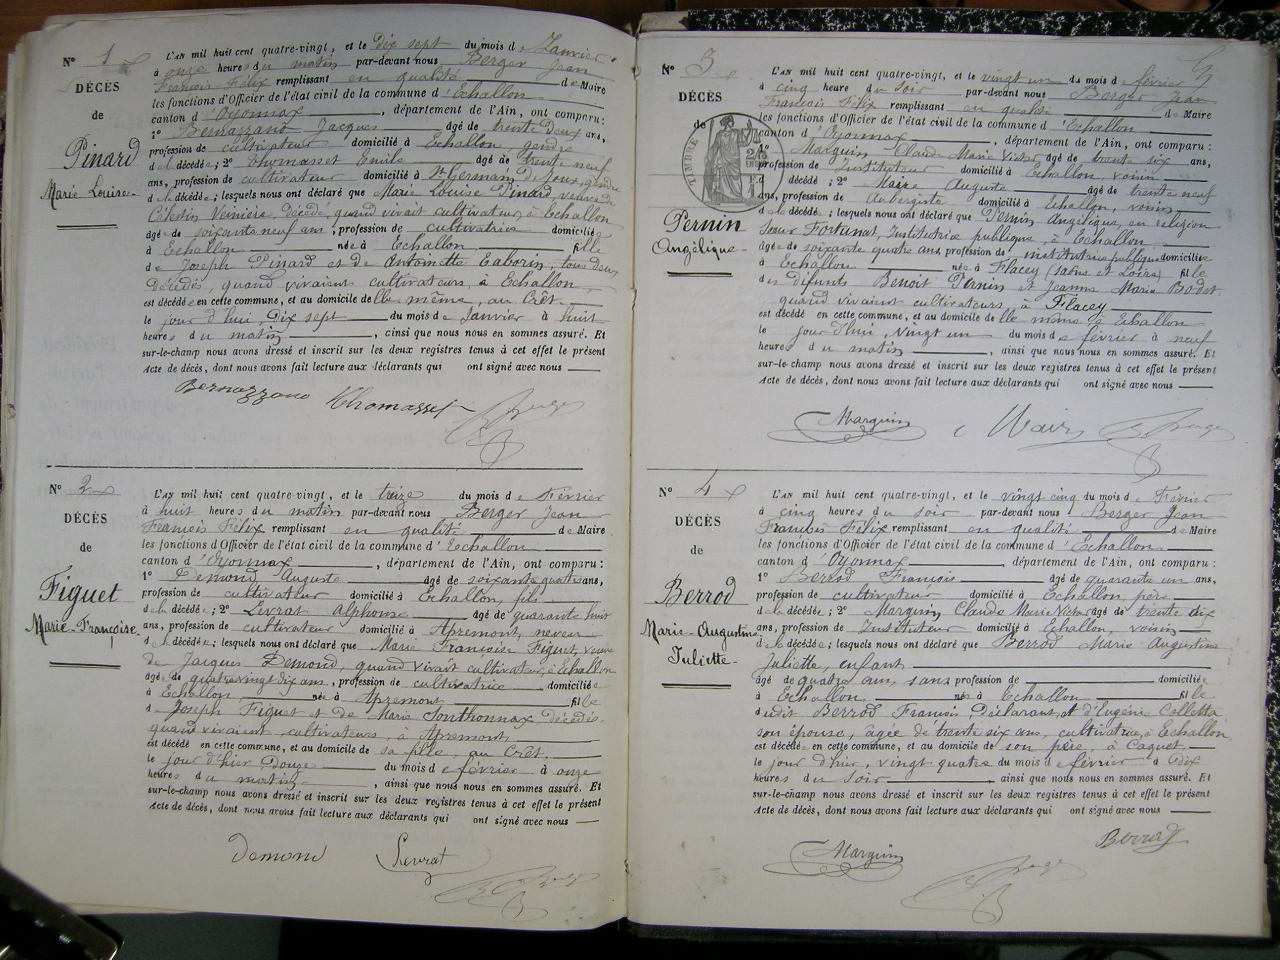 N° 1
DÉCÈS
de
Pinard
Marie Louise
L'AN mil huit cent quatre-vingt, et le Dix sept du mois de Janvier
à onze heures du matin par-devant nous Berger Jean
François Félix remplissant en qualité de Maire
les fonctions d'Officier de l'état civil de la commune d'Echallon
canton d'Oyonnax, département de l'Ain, ont comparu :
1° Bernazzano Jacques âgé de trente deux ans,
profession de cultivateur domicilié à Echallon gendre
de la décédée ; 2° Thomasset Emile âgé de trente neuf
ans, profession de cultivateur domicilié à St Germain de Joux, gendre
de la décédée ; lesquels nous ont déclaré que Marie Louise Pinard veuve de
Célestin Veinière, décédé, quand vivait cultivateur, à Echallon
âgée de soixante neuf ans, profession de cultivatrice domiciliée
à Echallon née à Echallon fille
de Joseph Pinard et de Antoinette Taborin, tous deux
décédés, quand vivaient cultivateurs à Echallon,
est décédée en cette commune, et au domicile d'elle même, au Crêt
le jour d'hui, Dix sept du mois de Janvier à huit
heures du matin, ainsi que nous nous en sommes assuré. Et
sur-le-champ nous avons dressé et inscrit sur les deux registres tenus à cet effet le présent
Acte de décès, dont nous avons fait lecture aux déclarants qui ont signé avec nous
Bernazzano Thomasset Berger
N° 2
DÉCÈS
de
Figuet
Marie-Françoise
L'AN mil huit cent quatre-vingt, et le treize du mois de Février
à huit heures du matin par-devant nous Berger Jean
François Félix remplissant en qualité de Maire
les fonctions d'Officier de l'état civil de la commune d'Echallon
canton d'Oyonnax, département de l'Ain, ont comparu :
1° Demond Auguste âgé de soixante quatre ans,
profession de cultivateur domicilié à Echallon, fils
de la décédée ; 2° Levrat Alphonse âgé de quarante huit
ans, profession de cultivateur domicilié à Apremont, neveu
de la décédée ; lesquels nous ont déclaré que Marie Françoise Figuet, veuve
de Jacques Demond, quand vivait cultivateur, à Echallon
âgée de quatre vingt dix ans, profession de cultivatrice domiciliée
à Echallon née à Apremont fille
de Joseph Figuet et de Marie Southonnax décédés
quand vivaient cultivateurs, à Apremont
est décédé en cette commune, et au domicile de sa fille au Crêt,
le jour d'hier Douze du mois de février à onze
heures du matin, ainsi que nous nous en sommes assuré. Et
sur-le-champ nous avons dressé et inscrit sur les deux registres tenus à cet effet le présent
Acte de décès, dont nous avons fait lecture aux déclarants qui ont signé avec nous
Demond Levrat Berger
N° 3
DÉCÈS
de
TIMBRE
Pernin
Angélique
L'AN mil huit cent quatre-vingt, et le vingt un du mois de février
à cinq heures du soir par-devant nous Berger Jean
François Félix remplissant en qualité de Maire
les fonctions d'Officier de l'état civil de la commune d'Echallon
canton d'Oyonnax, département de l'Ain, ont comparu :
1° Marquin Claude Marie Victor âgé de trente six ans,
profession d'Instituteur domicilié à Echallon, voisin
d décédé ; 2° Maire Auguste âgé de trente neuf
ans, profession de aubergiste domicilié à Echallon voisin
de la décédée ; lesquels nous ont déclaré que Pernin Angélique, en religion
Soeur Fortunat, Institutrice publique, à Echallon
âgée de soixante quatre ans, profession de institutrice publique domiciliée
à Echallon née à Flacey (Saône et Loire) fille
des défunts Benoit Pernin et Jeanne Marie Bodet
quand vivaient cultivateurs, à Flacey
est décédé en cette commune, et au domicile d'elle même à Echallon
le jour d'hui, vingt un du mois de février à neuf
heures du matin, ainsi que nous nous en sommes assuré. Et
sur-le-champ nous avons dressé et inscrit sur les deux registres tenus à cet effet le présent
Acte de décès, dont nous avons fait lecture aux déclarants qui ont signé avec nous
Marquin Maire Berger
N° 4
DÉCÈS
de
Berrod
Marie-Augustine
Juliette
L'AN mil huit cent quatre-vingt, et le vingt cinq du mois de Février
à cinq heures du soir par-devant nous Berger Jean
François Félix remplissant en qualité de Maire
les fonctions d'Officier de l'état civil de la commune d'Echallon
canton d'Oyonnax, département de l'Ain, ont comparu :
1° Berrod François âgé de quarante un ans,
profession de cultivateur domicilié à Echallon, père
de la décédée ; 2° Marquin Claude Marie Victor âgé de trente dix
ans, profession de Instituteur domicilié à Echallon, voisin
de la décédée ; lesquels nous ont déclaré que Berrod Marie Augustine
Juliette, enfant
âgé de quatre ans, sans profession de domiciliée
à Echallon née à Echallon fille
dudit Berrod François, Déclarant, et d'Eugénie Collette
son épouse, âgée de trente six ans, cultivatrice, à Echallon
est décédé en cette commune, et au domicile de son père, à Caquet,
le jour d'hier, vingt quatre du mois de février à dix
heures du soir, ainsi que nous nous en sommes assuré. Et
sur-le-champ nous avons dressé et inscrit sur les deux registres tenus à cet effet le présent
Acte de décès, dont nous avons fait lecture aux déclarants qui ont signé avec nous
Marquin Berrod Berger